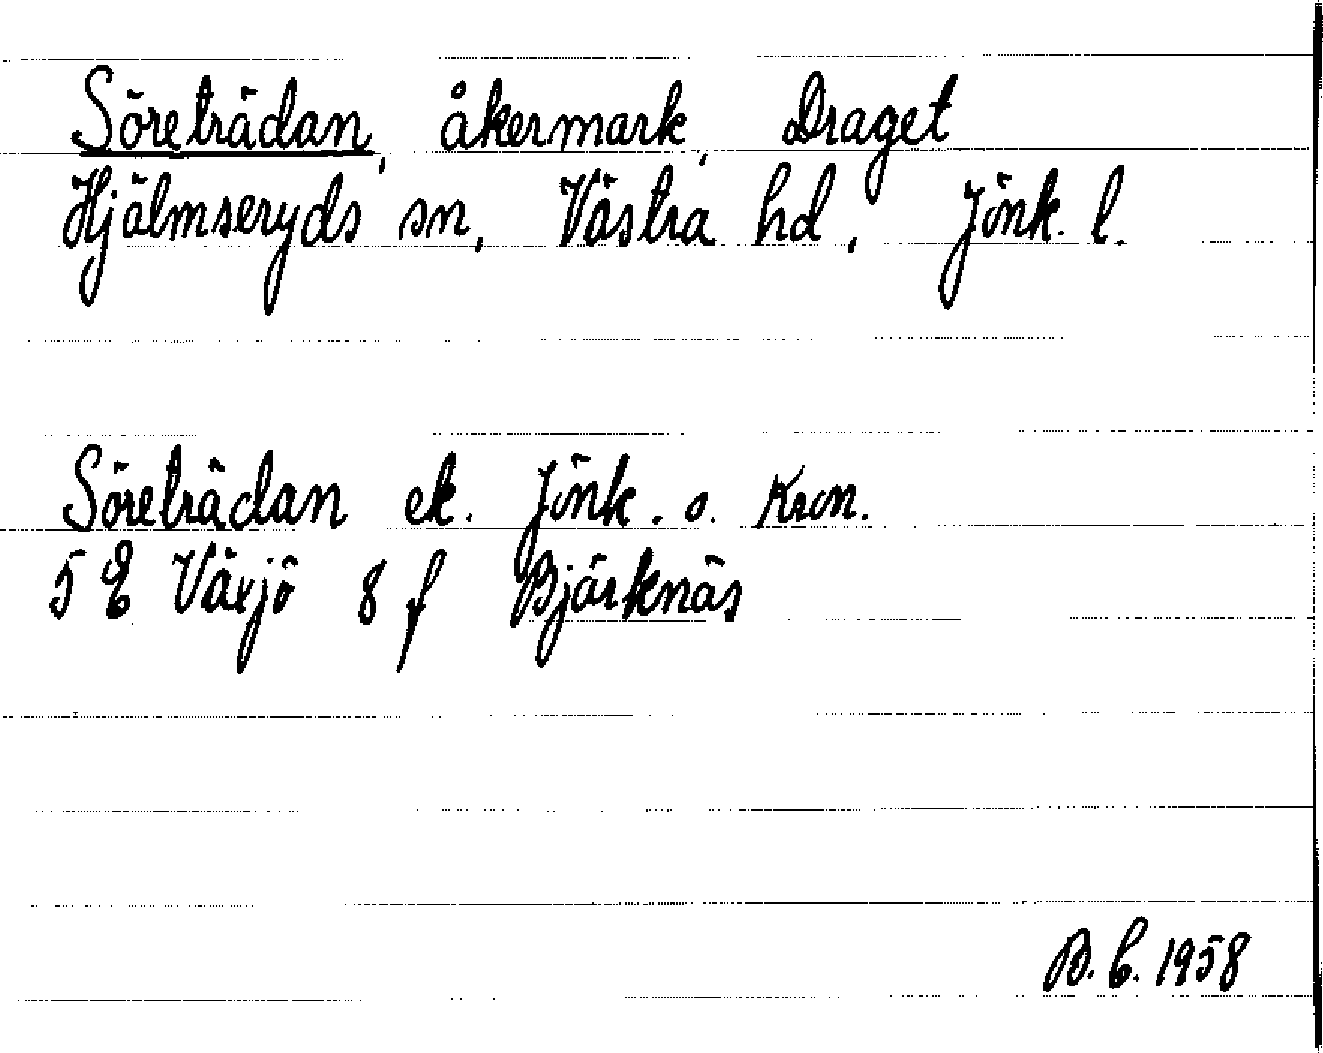 Söreträdan, åkermark, Draget
Hjälmseryds sn, Västra hd, Jönk. l.
Söreträdan ek. Jönk. o. Kron.
5 E Växjö 8 f Bjärknäs
B. C. 1958